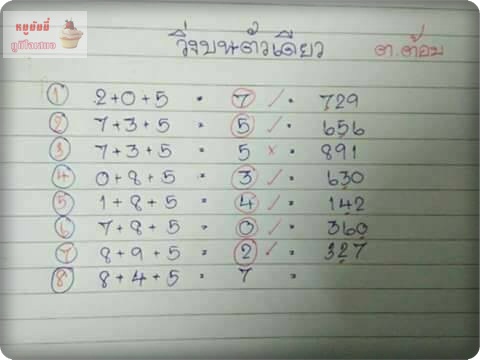 วิ่งบนตัวเดียว ต.ต้อม
① 2+0+5 = 7 ✓ = 729
② 7+3+5 = 5 ✓ = 656
③ 7+3+5 = 5 × = 891
④ 0+8+5 = 3 ✓ = 630
⑤ 1+8+5 = 4 ✓ = 142
⑥ 7+8+5 = 0 ✓ = 360
⑦ 8+9+5 = 2 ✓ = 327
⑧ 8+4+5 = 7 =